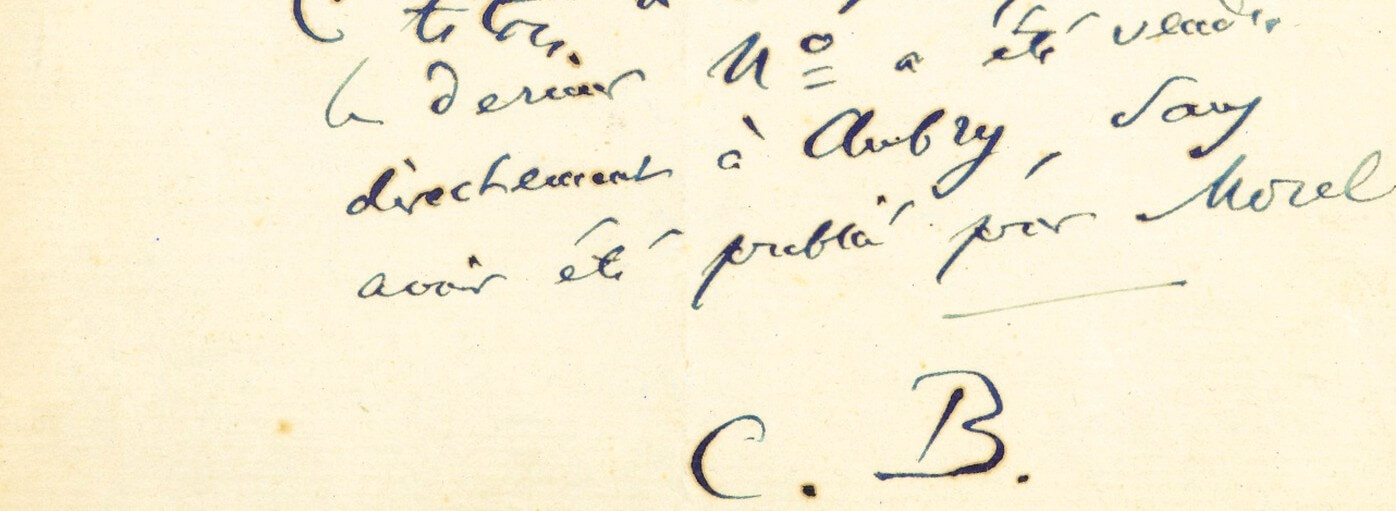 titres.
le dernier Nº a été vendu
directement à Aubry, sans
avoir été publié par Morel
C. B.